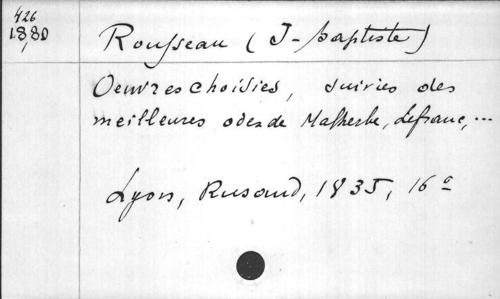 426
18,80
Rousseau (J-baptiste)
Oeuvres choisies, suivies des
meilleures odes de Malherbe, Lefranc, ...
Lyon, Rusand, 1835, 16º